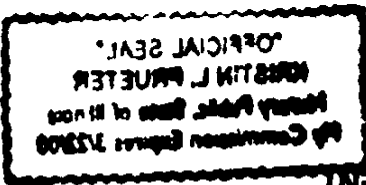 "OFFICIAL SEAL"
KRISTIN L. PRUETER
Notary Public, State of Illinois
My Commission Expires 3/23/00